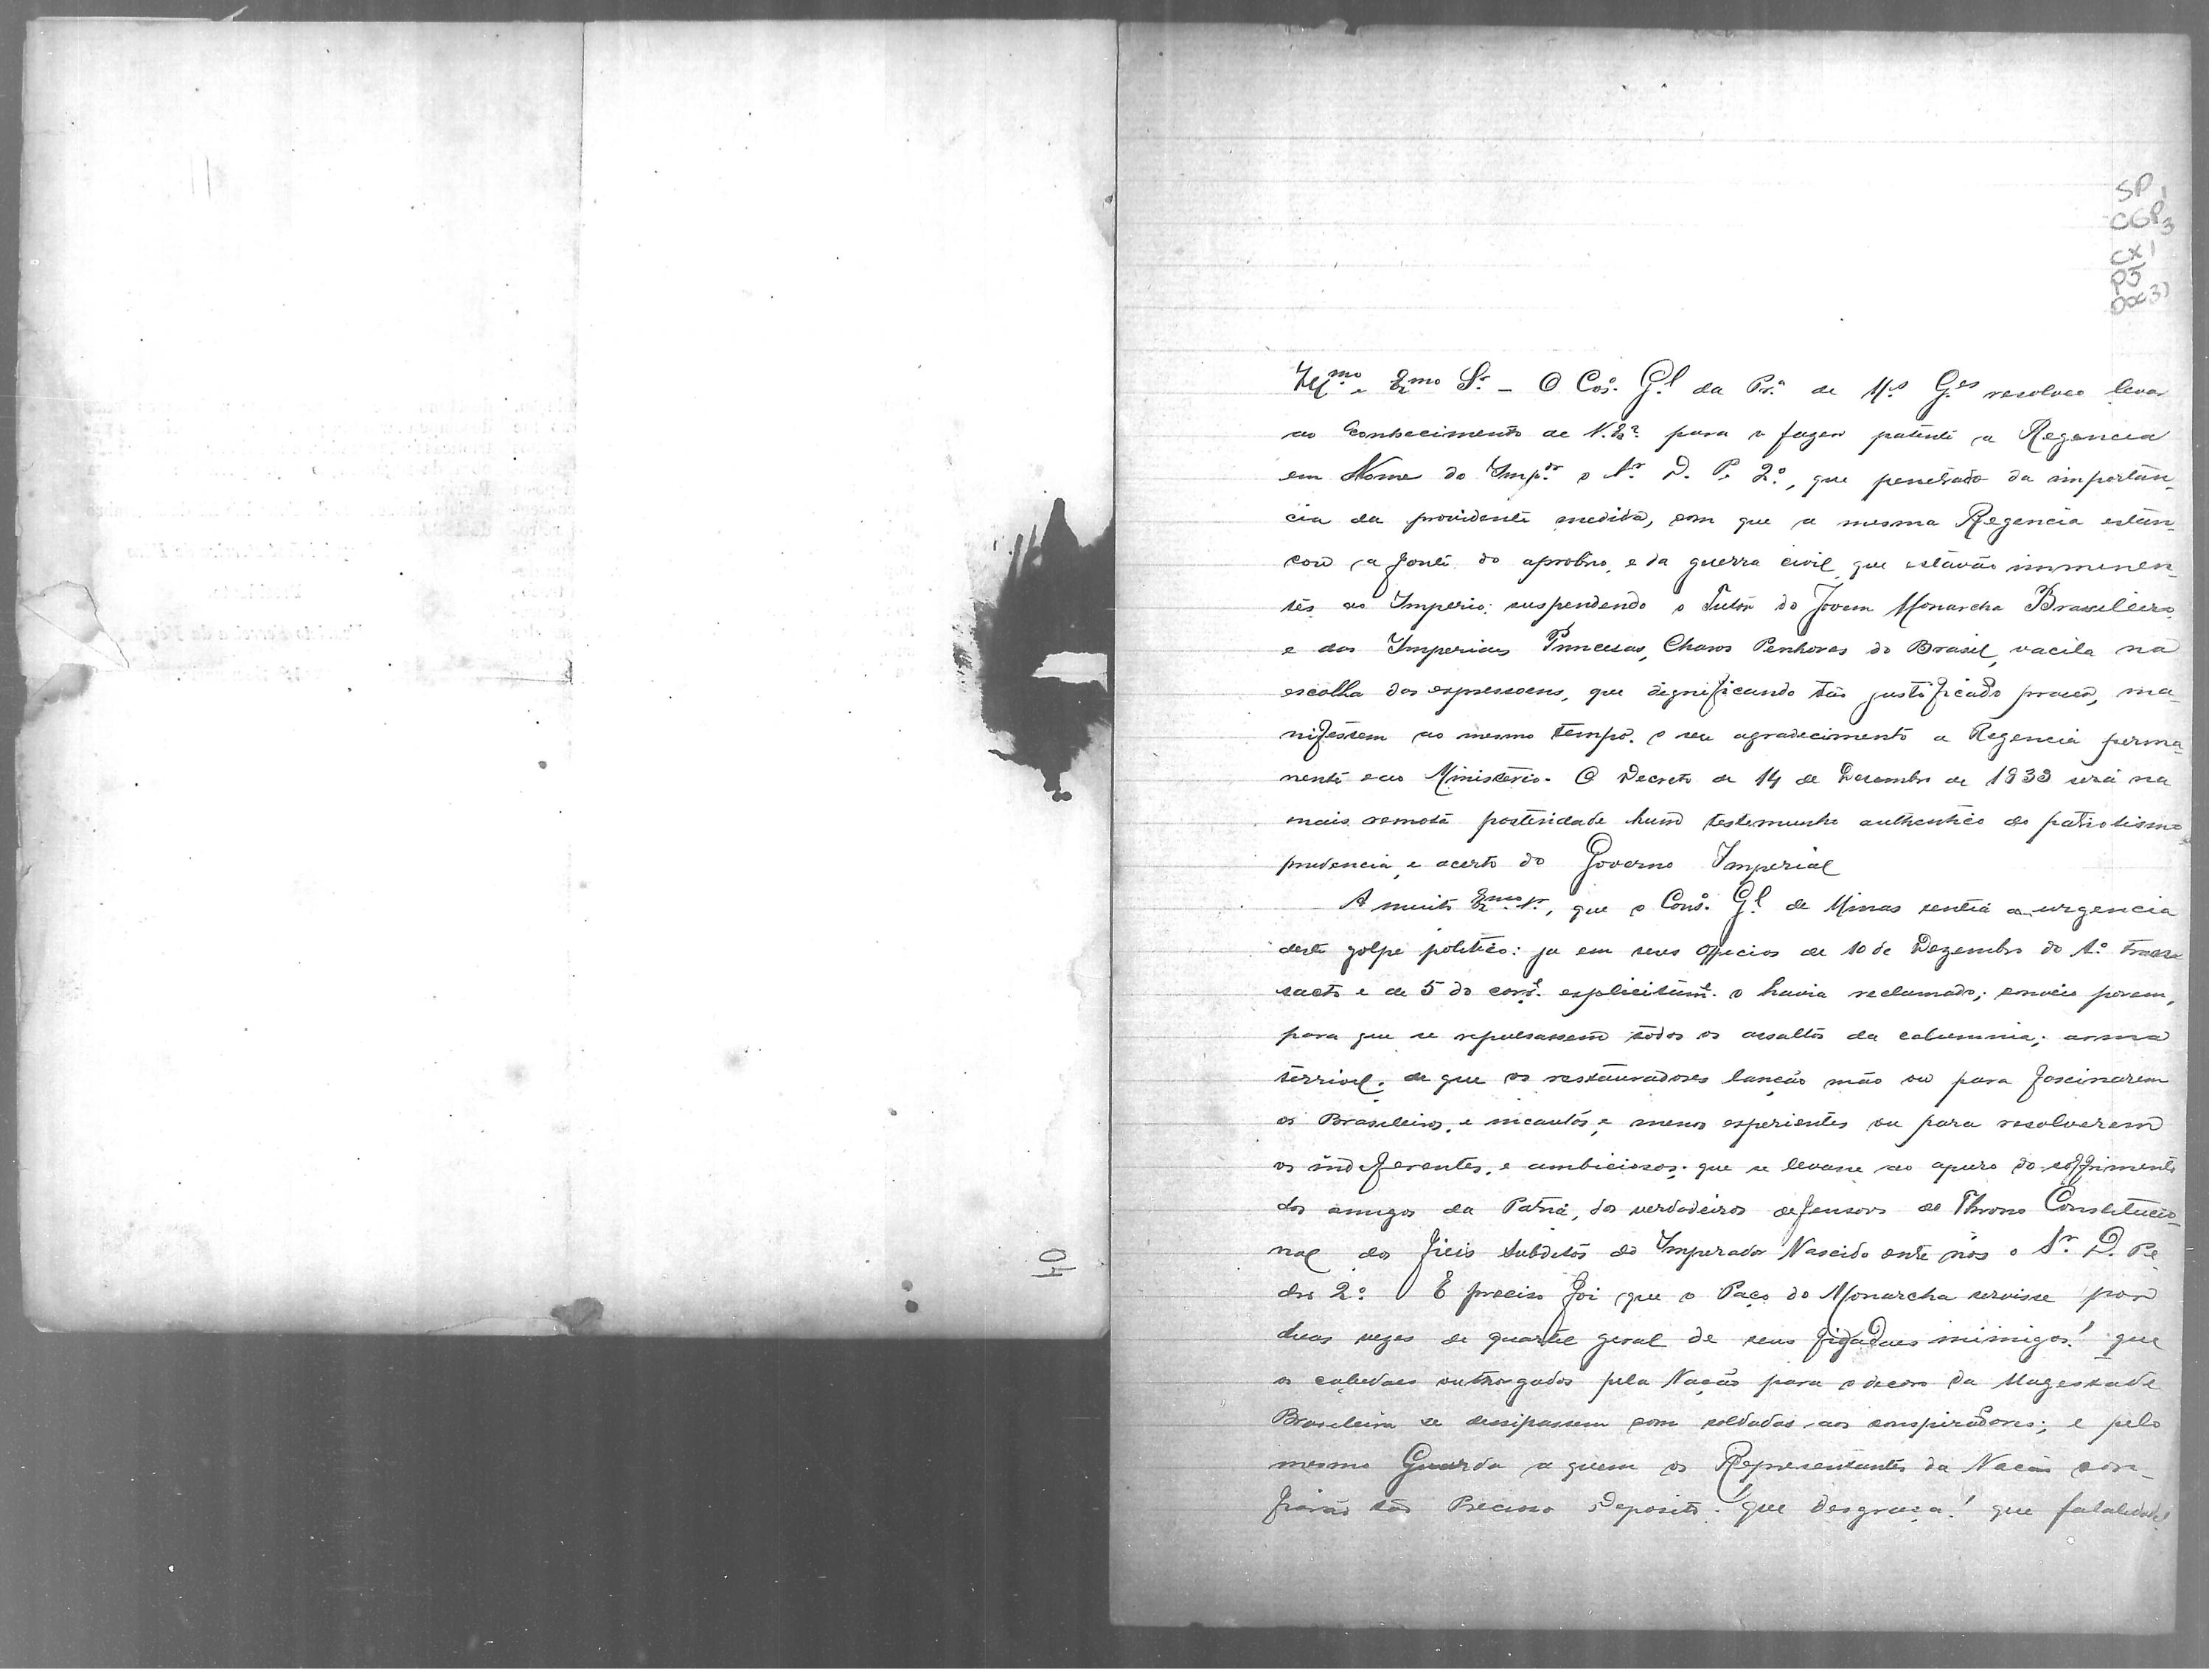 SP1
CGP3
CX1
P5
Doc 3)
Ill.mo e Ex.mo Sr. – O Cos.o G.l da Pr.a de M.s G.es resolveo levar
ao Conhecimento de V. Ex.a para o fazer patente a Regencia
em Nome do Imp.dor o Sr. D. P. 2.o, que penetrado da importan-
cia da providente medida, com que a mesma Regencia estan-
cou a fonte do aprobrio, e da guerra civil que estavão imminen-
tes ao Imperio; suspendendo o Tutor do Jovem Monarcha Brasileiro
e das Imperiaes Princesas, Charos Penhores do Brasil, vacila na
escolha das expressoens, que significando tão justificado praser, ma-
nifestem ao mesmo tempo o seu agradecimento a Regencia perma-
nente e ao Ministerio. O Decreto de 14 de Desembro de 1833 será na
mais remota posteridade hum testemunho authentico do patriotismo
prudencia, e acerto do Governo Imperial
A muito Ex.mo Sr., que o Cons.o G.l de Minas sentia a urgencia
deste golpe politico: ja em seus officios de 10 de Dezembro do A.o transa
sacto e de 5 do corr.e explicitam.e o havia reclamado; conveio porem,
para que se repulsassem todos os assaltos da calumnia; arma
terrivel, de que os restauradores lanção mão ou para fascinarem
os Brasileiros, e incautos, e menos esperientes ou para resolverem
os indeferentes, e ambiciosos; que se levasse ao apuro do soffrimento
dos amigos da Patria, dos verdadeiros defensores do Throno Constitucio-
nal dos fieis subditos do Imperador Nascido entre nós o Sr. D. Pe
dro 2.o E preciso foi que o Paço do Monarcha servisse por
duas vezes de quartel geral de seus figadaes inimigos! que
os cabedaes outhorgados pela Nação para o decoro da Magestade
Brasileira se dessipassem com soldadas aos conspiradores; e pelo
mesmo Guarda a quem os Representantes da Nação con-
fiarão tão Precioso Deposito! que desgraça! que fatalidade!